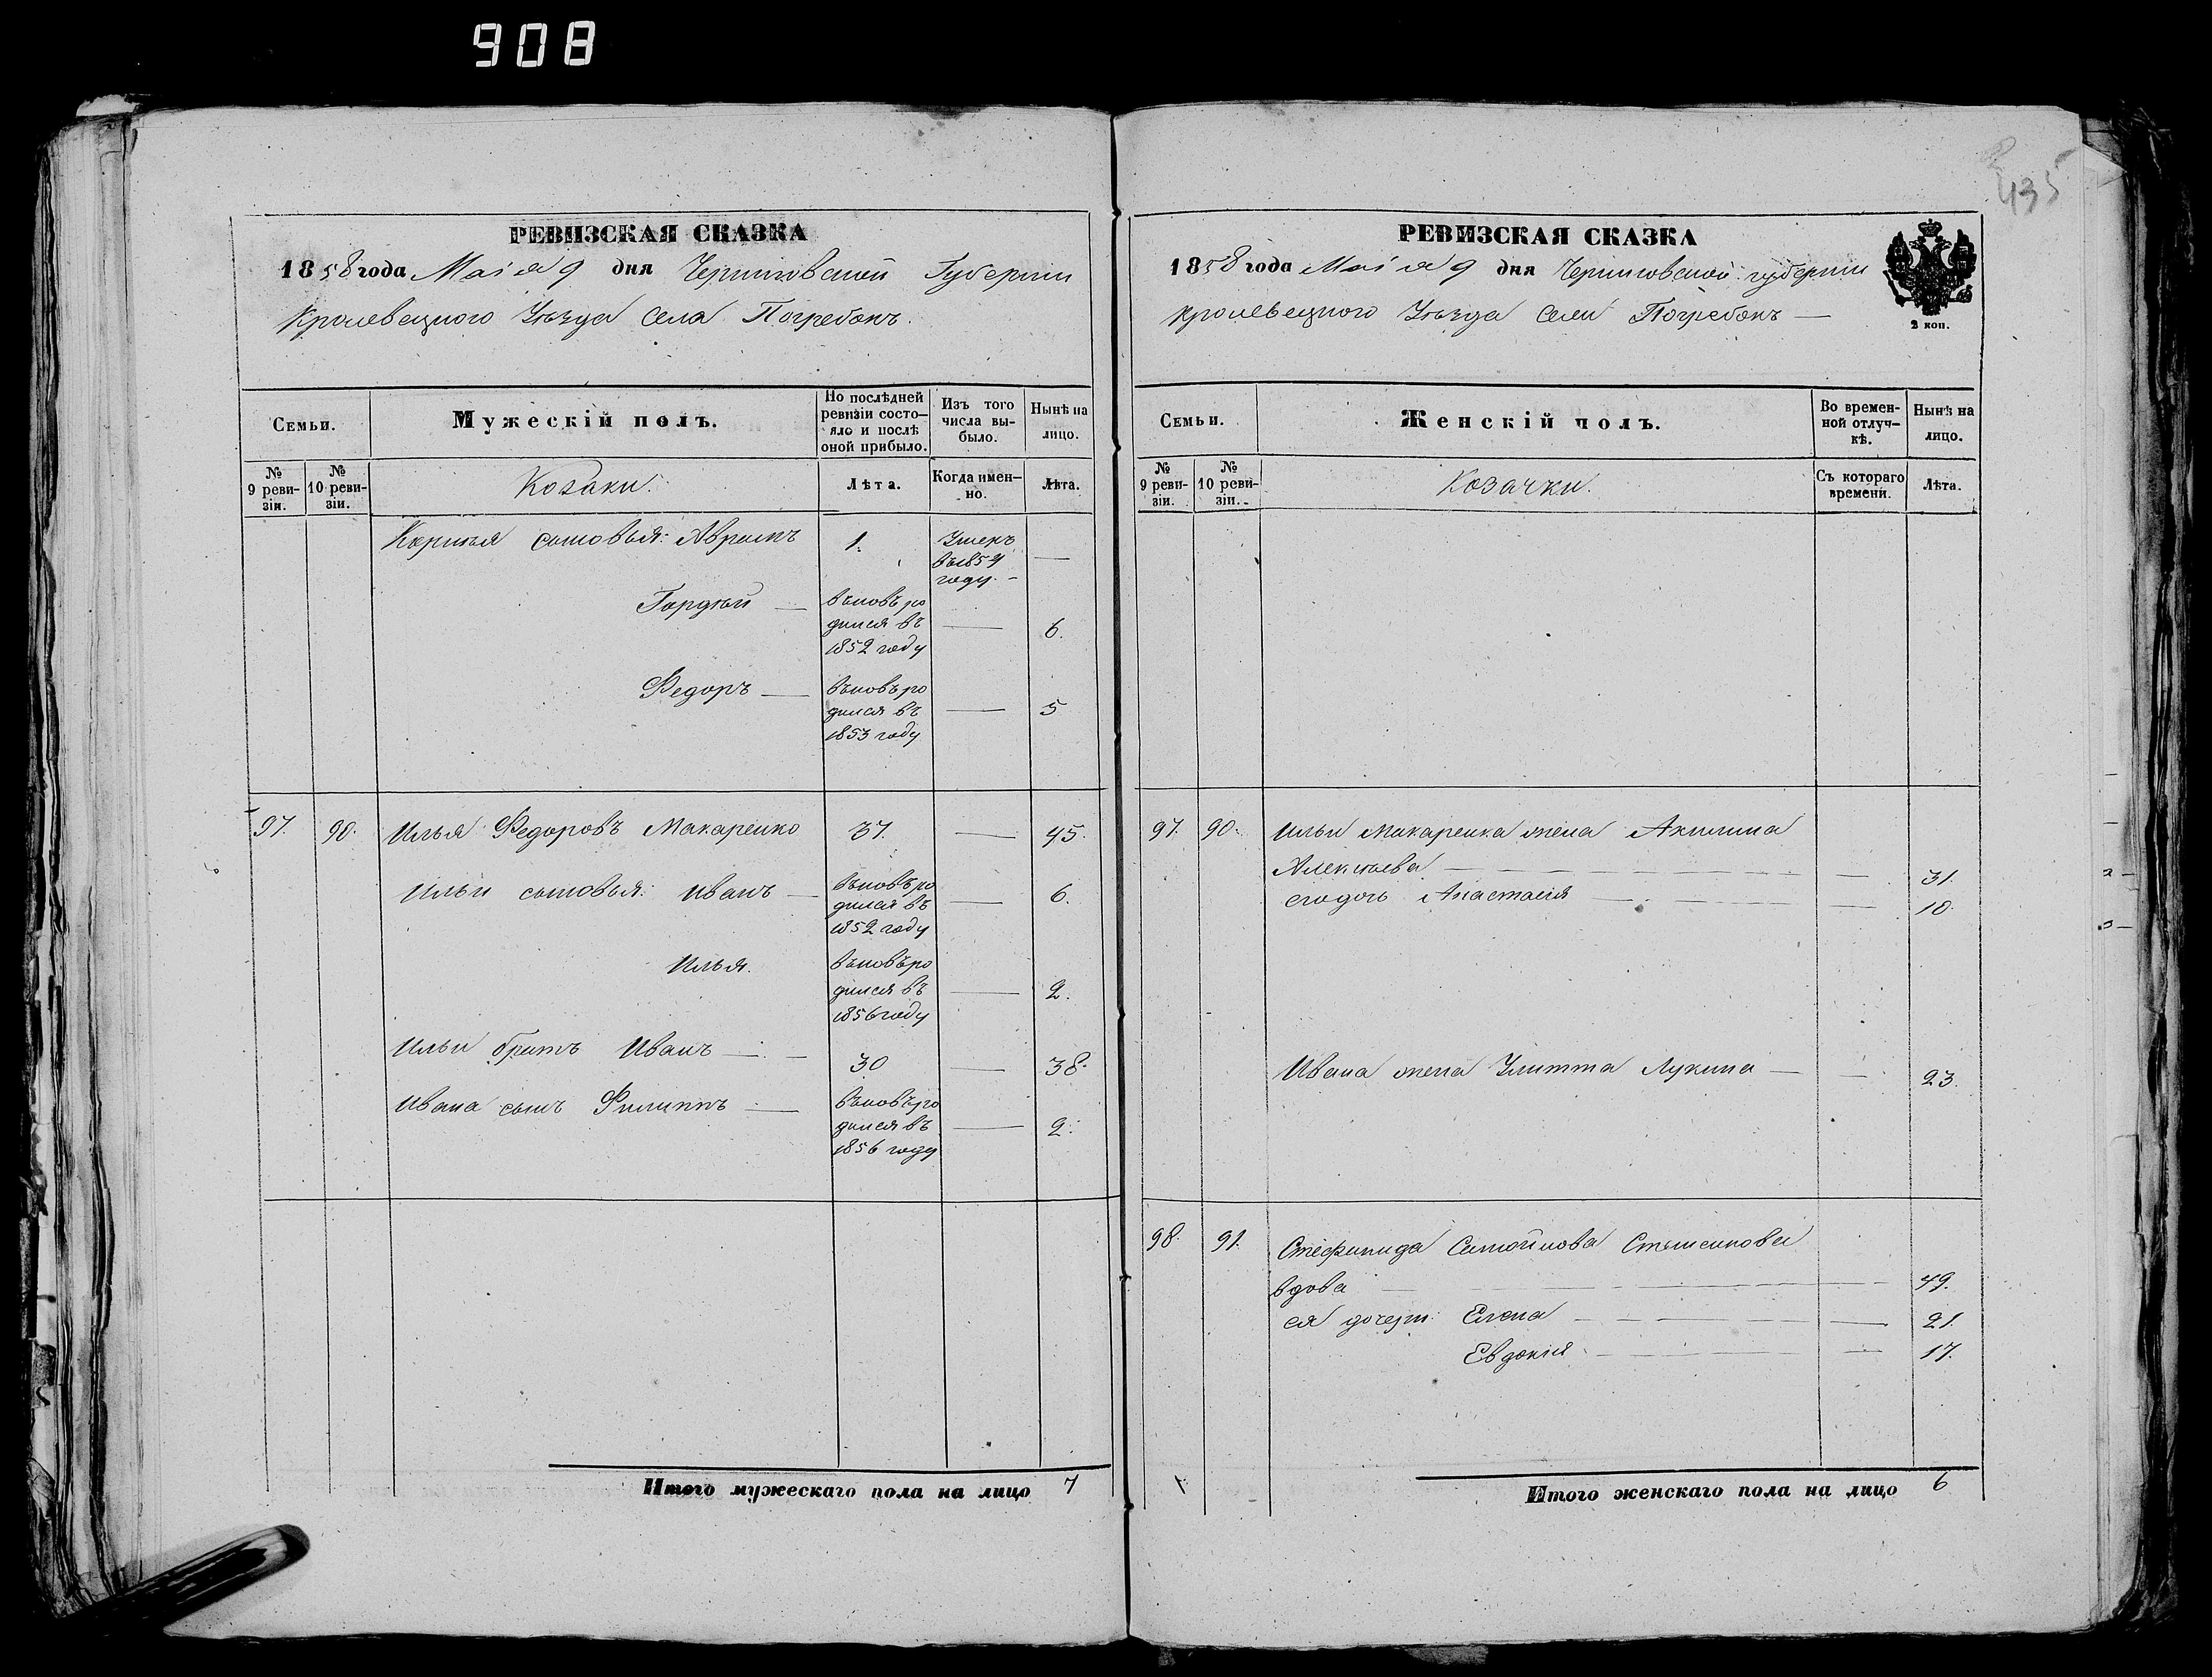 908
435
РЕВИЗСКАЯ СКАЗКА
1858 года Маія 9 дня Черниговской Губерніи
Кролевецкого Уѣзда Села Погребокъ.
Семьи.
Мужескій полъ.
По послѣдней
ревизіи состо-
яло и послѣ
оной прибыло.
Изъ того
числа вы-
было.
Нынѣ на
лицо.
№
9 реви-
зіи.
№
10 реви-
зіи.
Козаки.
Лѣта.
Когда имен-
но.
Лѣта.
сыновья: Аврамъ 1. Умеръ —
въ 1854
году. -
Гордѣй — вновь ро
дился въ — 6.
1852 году
Федоръ — вновь ро
дился въ — 5
1853 году
97. 90. Илья Федоровъ Макаренко 37. — 45.
Ильи сыновья: Иванъ — вновь ро
дился въ — 6.
1852 году
Илья. вновь ро
дился въ — 2.
1856 году
Ильи братъ Иванъ — 30 — 38.
Ивана сынъ Филиппъ — вновь ро
дился въ — 2.
1856 году
Итого мужескаго пола на лицо 7
РЕВИЗСКАЯ СКАЗКА
1858 года Маія 9 дня Черниговской губерніи
Кролевецкого Уѣзда Села Погребокъ —
2 коп.
Семьи.
Женскій полъ.
Во времен-
ной отлуч-
кѣ.
Нынѣ на
лицо.
№
9 реви-
зіи.
№
10 реви-
зіи.
Козачки.
Съ котораго
времени.
Лѣта.
97. 90. Ильи Макаренка жена Акилина
Алексѣева — — 31.
его дочь Анастасія — — 10.
Ивана жена Улитта Лукина — — 23.
98. 91. Самойлова
вдова — — 49.
ея дочери: Елена — — 21.
Евдокія — — 17.
Итого женскаго пола на лицо 6